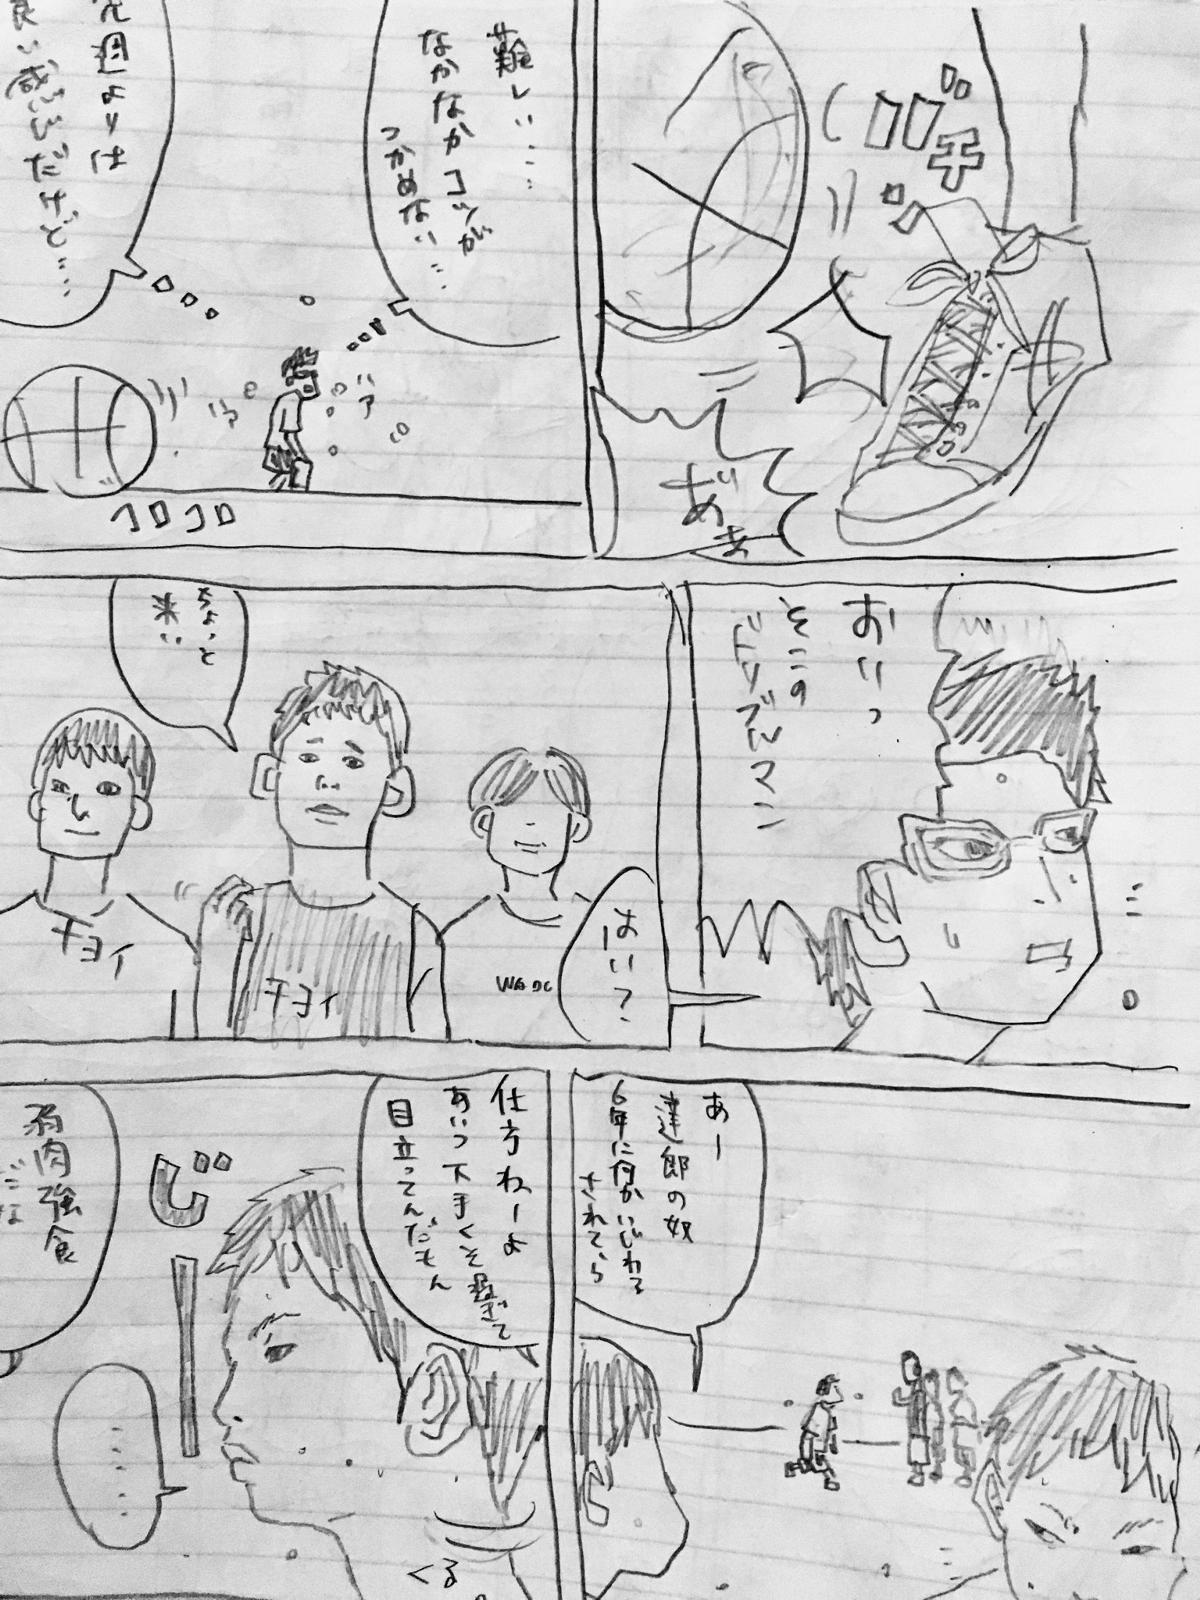 バチ
あ゛ぁ
難しい…
なかなかコツが
つかめない…
先週よりは
良い感じだけど…
ハァ
ハァ
コロコロ
おいっ
そこの
ドリブルマン
はい?
ちょっと
来い
チョイ
チョイ
あー
達郎の奴
6年に何かいじわる
されてら
仕方ねーよ
あいつ下手くそ過ぎて
目立ってんだもん
じー
弱肉強食
だな
……
くる